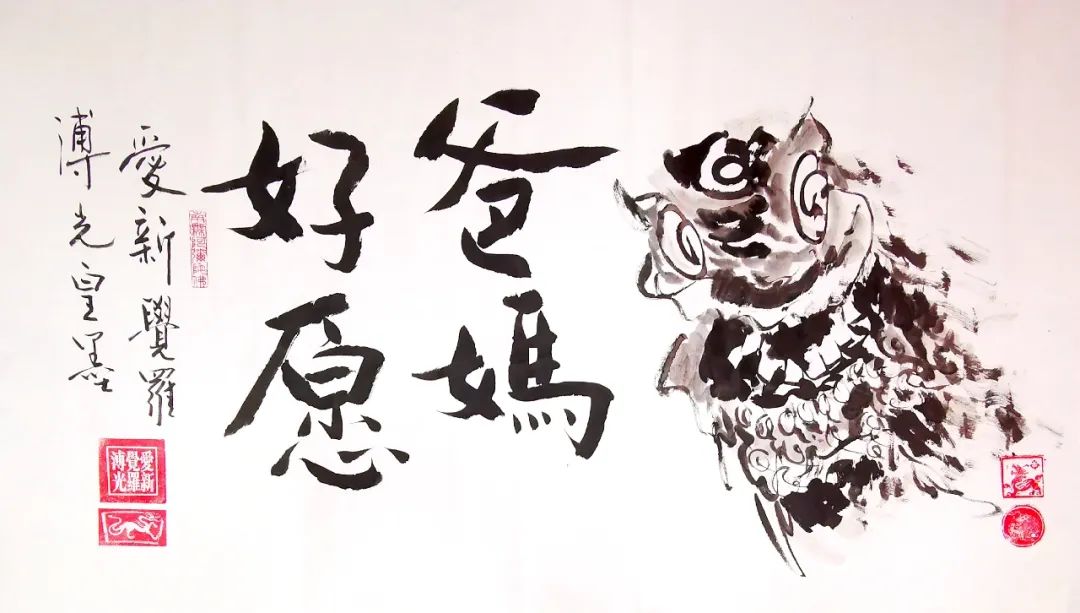 爸媽
好愿
愛新覺羅
溥光皇墨
愛新
覺羅
溥光